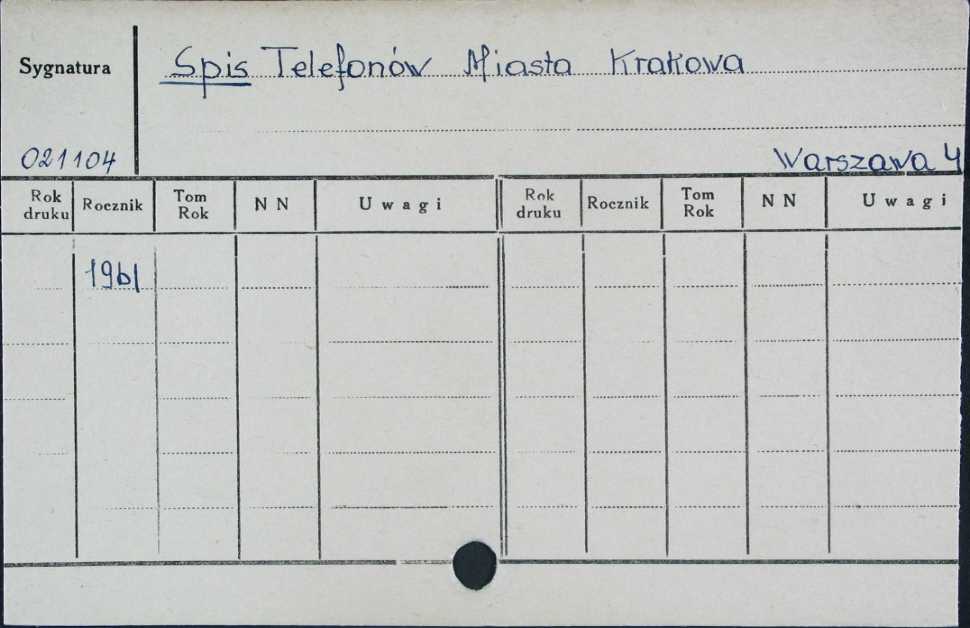 Sygnatura
Spis Telefonów Miasta Krakowa
021104
Warszawa 4
Rok druku Rocznik Tom Rok N N Uwagi Rok druku Rocznik Tom Rok N N Uwagi
1961